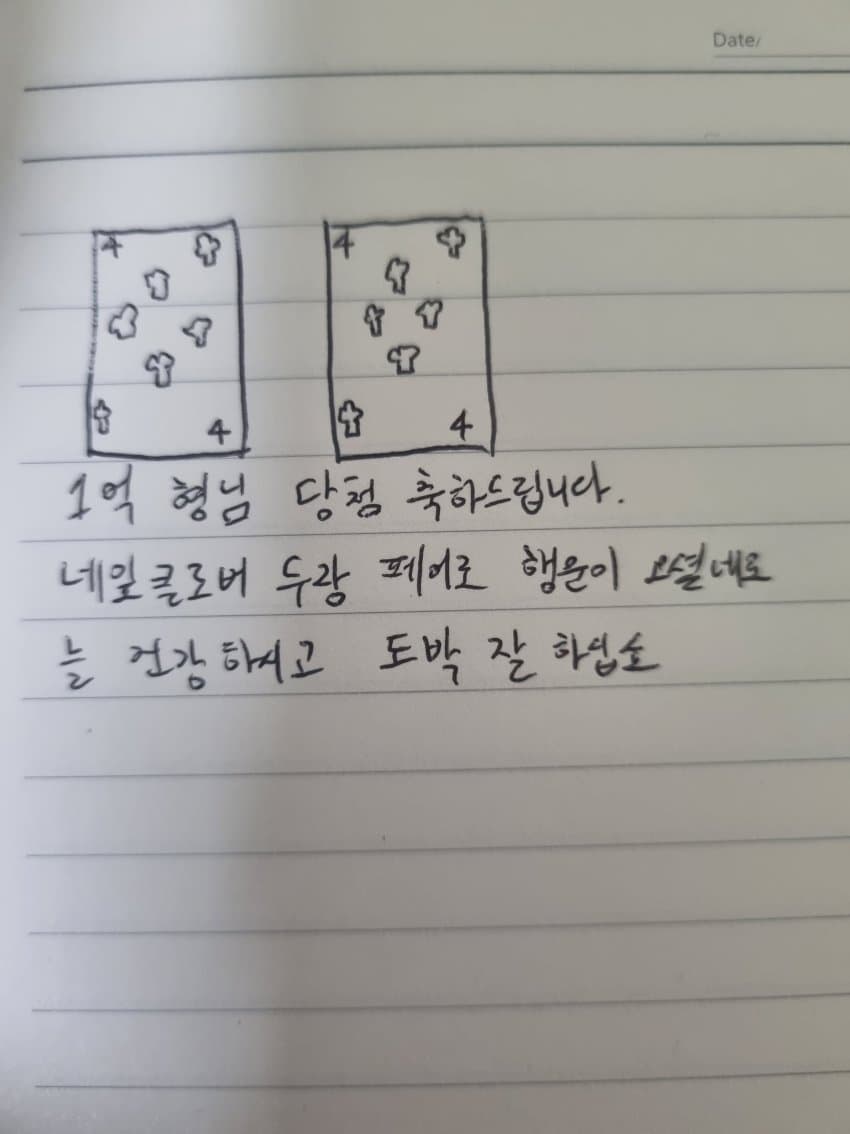 Date/
4 4
4 4
1억 형님 당첨 축하드립니다.
네잎클로버 두장 페어로 행운이
늘 건강하시고 도박 잘 하십쇼